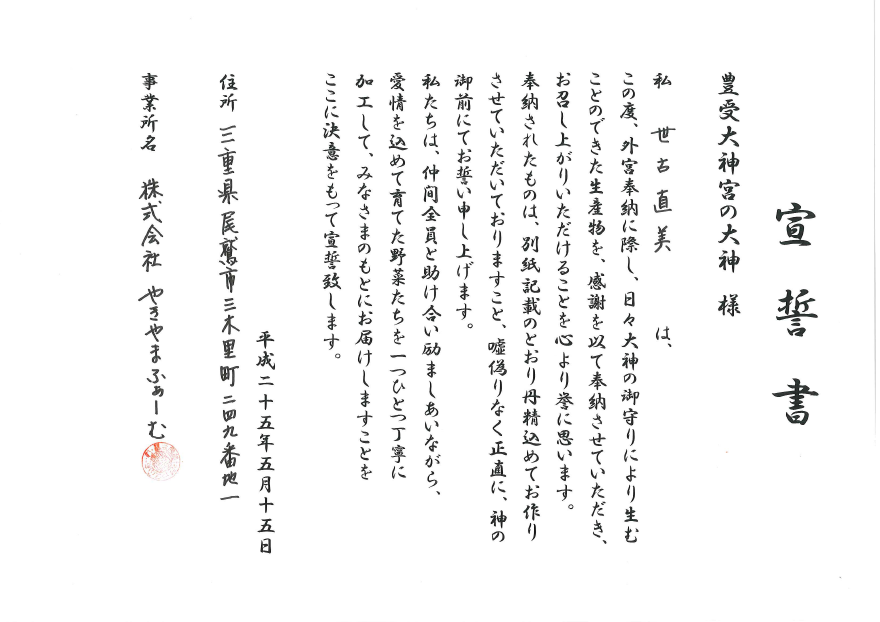 宣誓書
豊受大神宮の大神 様
私 世古直美 は、
この度、外宮奉納に際し、日々大神の御守りにより生む
ことのできた生産物を、感謝を以て奉納させていただき、
お召し上がりいただけることを心より誉に思います。
奉納されたものは、別紙記載のとおり丹精込めてお作り
させていただいておりますこと、嘘偽りなく正直に、神の
御前にてお誓い申し上げます。
私たちは、仲間全員と助け合い励ましあいながら、
愛情を込めて育てた野菜たちを一つひとつ丁寧に
加工して、みなさまのもとにお届けしますことを
ここに決意をもって宣誓致します。
平成二十五年五月十五日
住所 三重県尾鷲市三木里町二四九番地一
事業所名 株式会社 やきやまふぁーむ